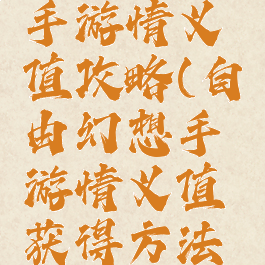 手游情义
值攻略(自
由幻想手
游情义值
获得方法